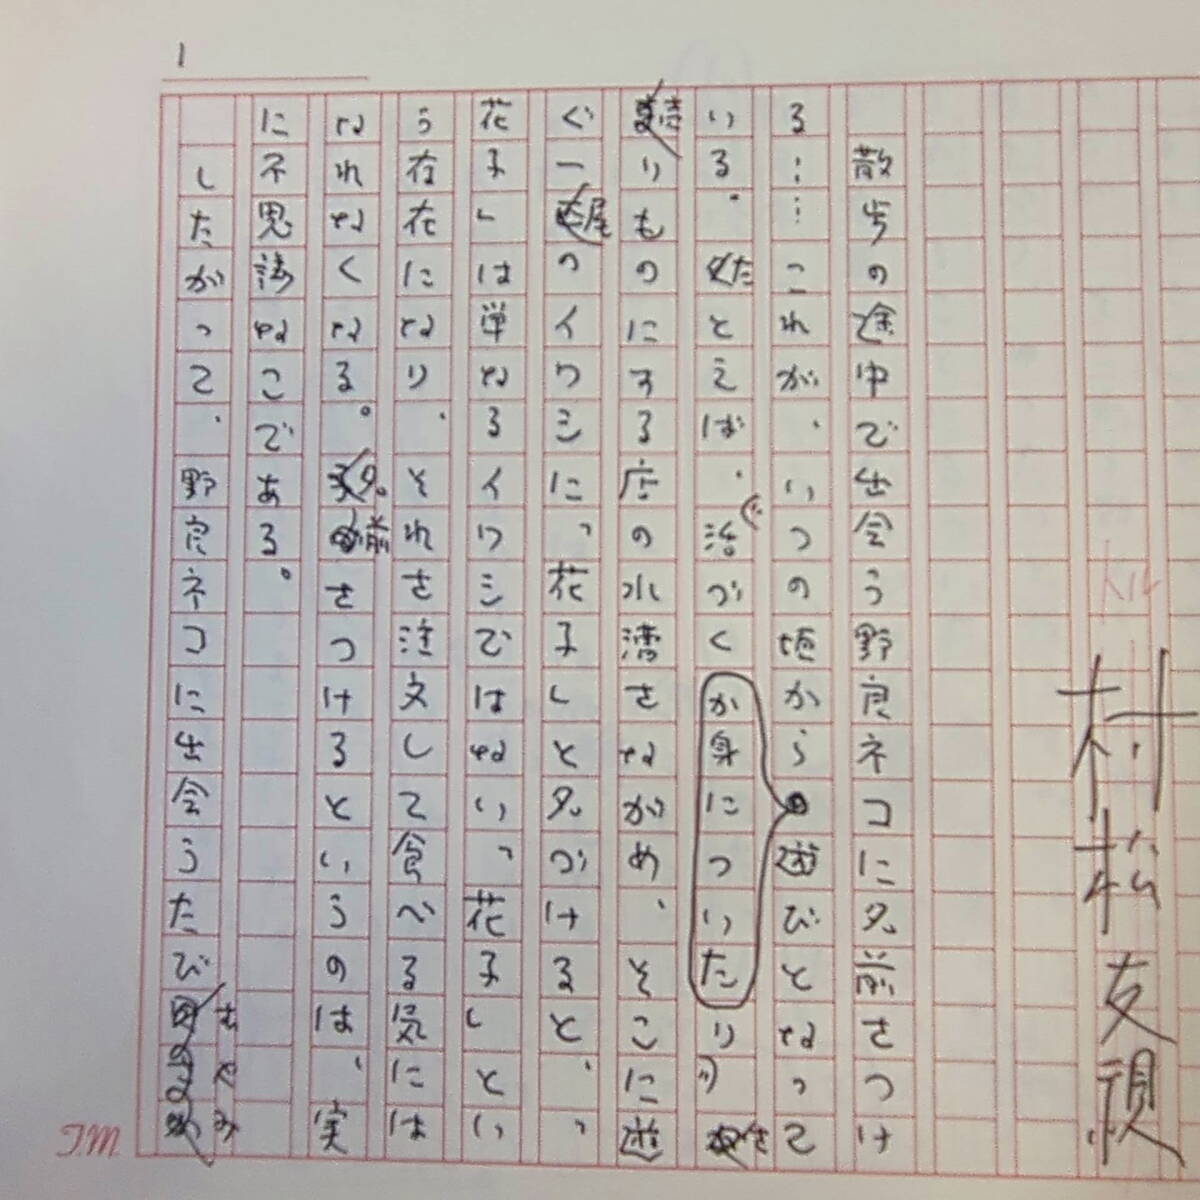 村松友視
散歩の途中で出会う野良ネコに名前さつけ
る……これが、いつの頃から遊びとなって
いる。たとえば、活づくり
かりものにする店の水湾さながめ、そこに遊
ぐ一尾のイワシに、「花子」と名づけると、「
花子」は単なるイワシではない、「花子」とい
う存在になり、それさ注文して食べる気には
なれなくなる。名前さつけるというのは、実
に不思議なことである。
したがって、野良ネコに出会うたび
むやみ
1
TM